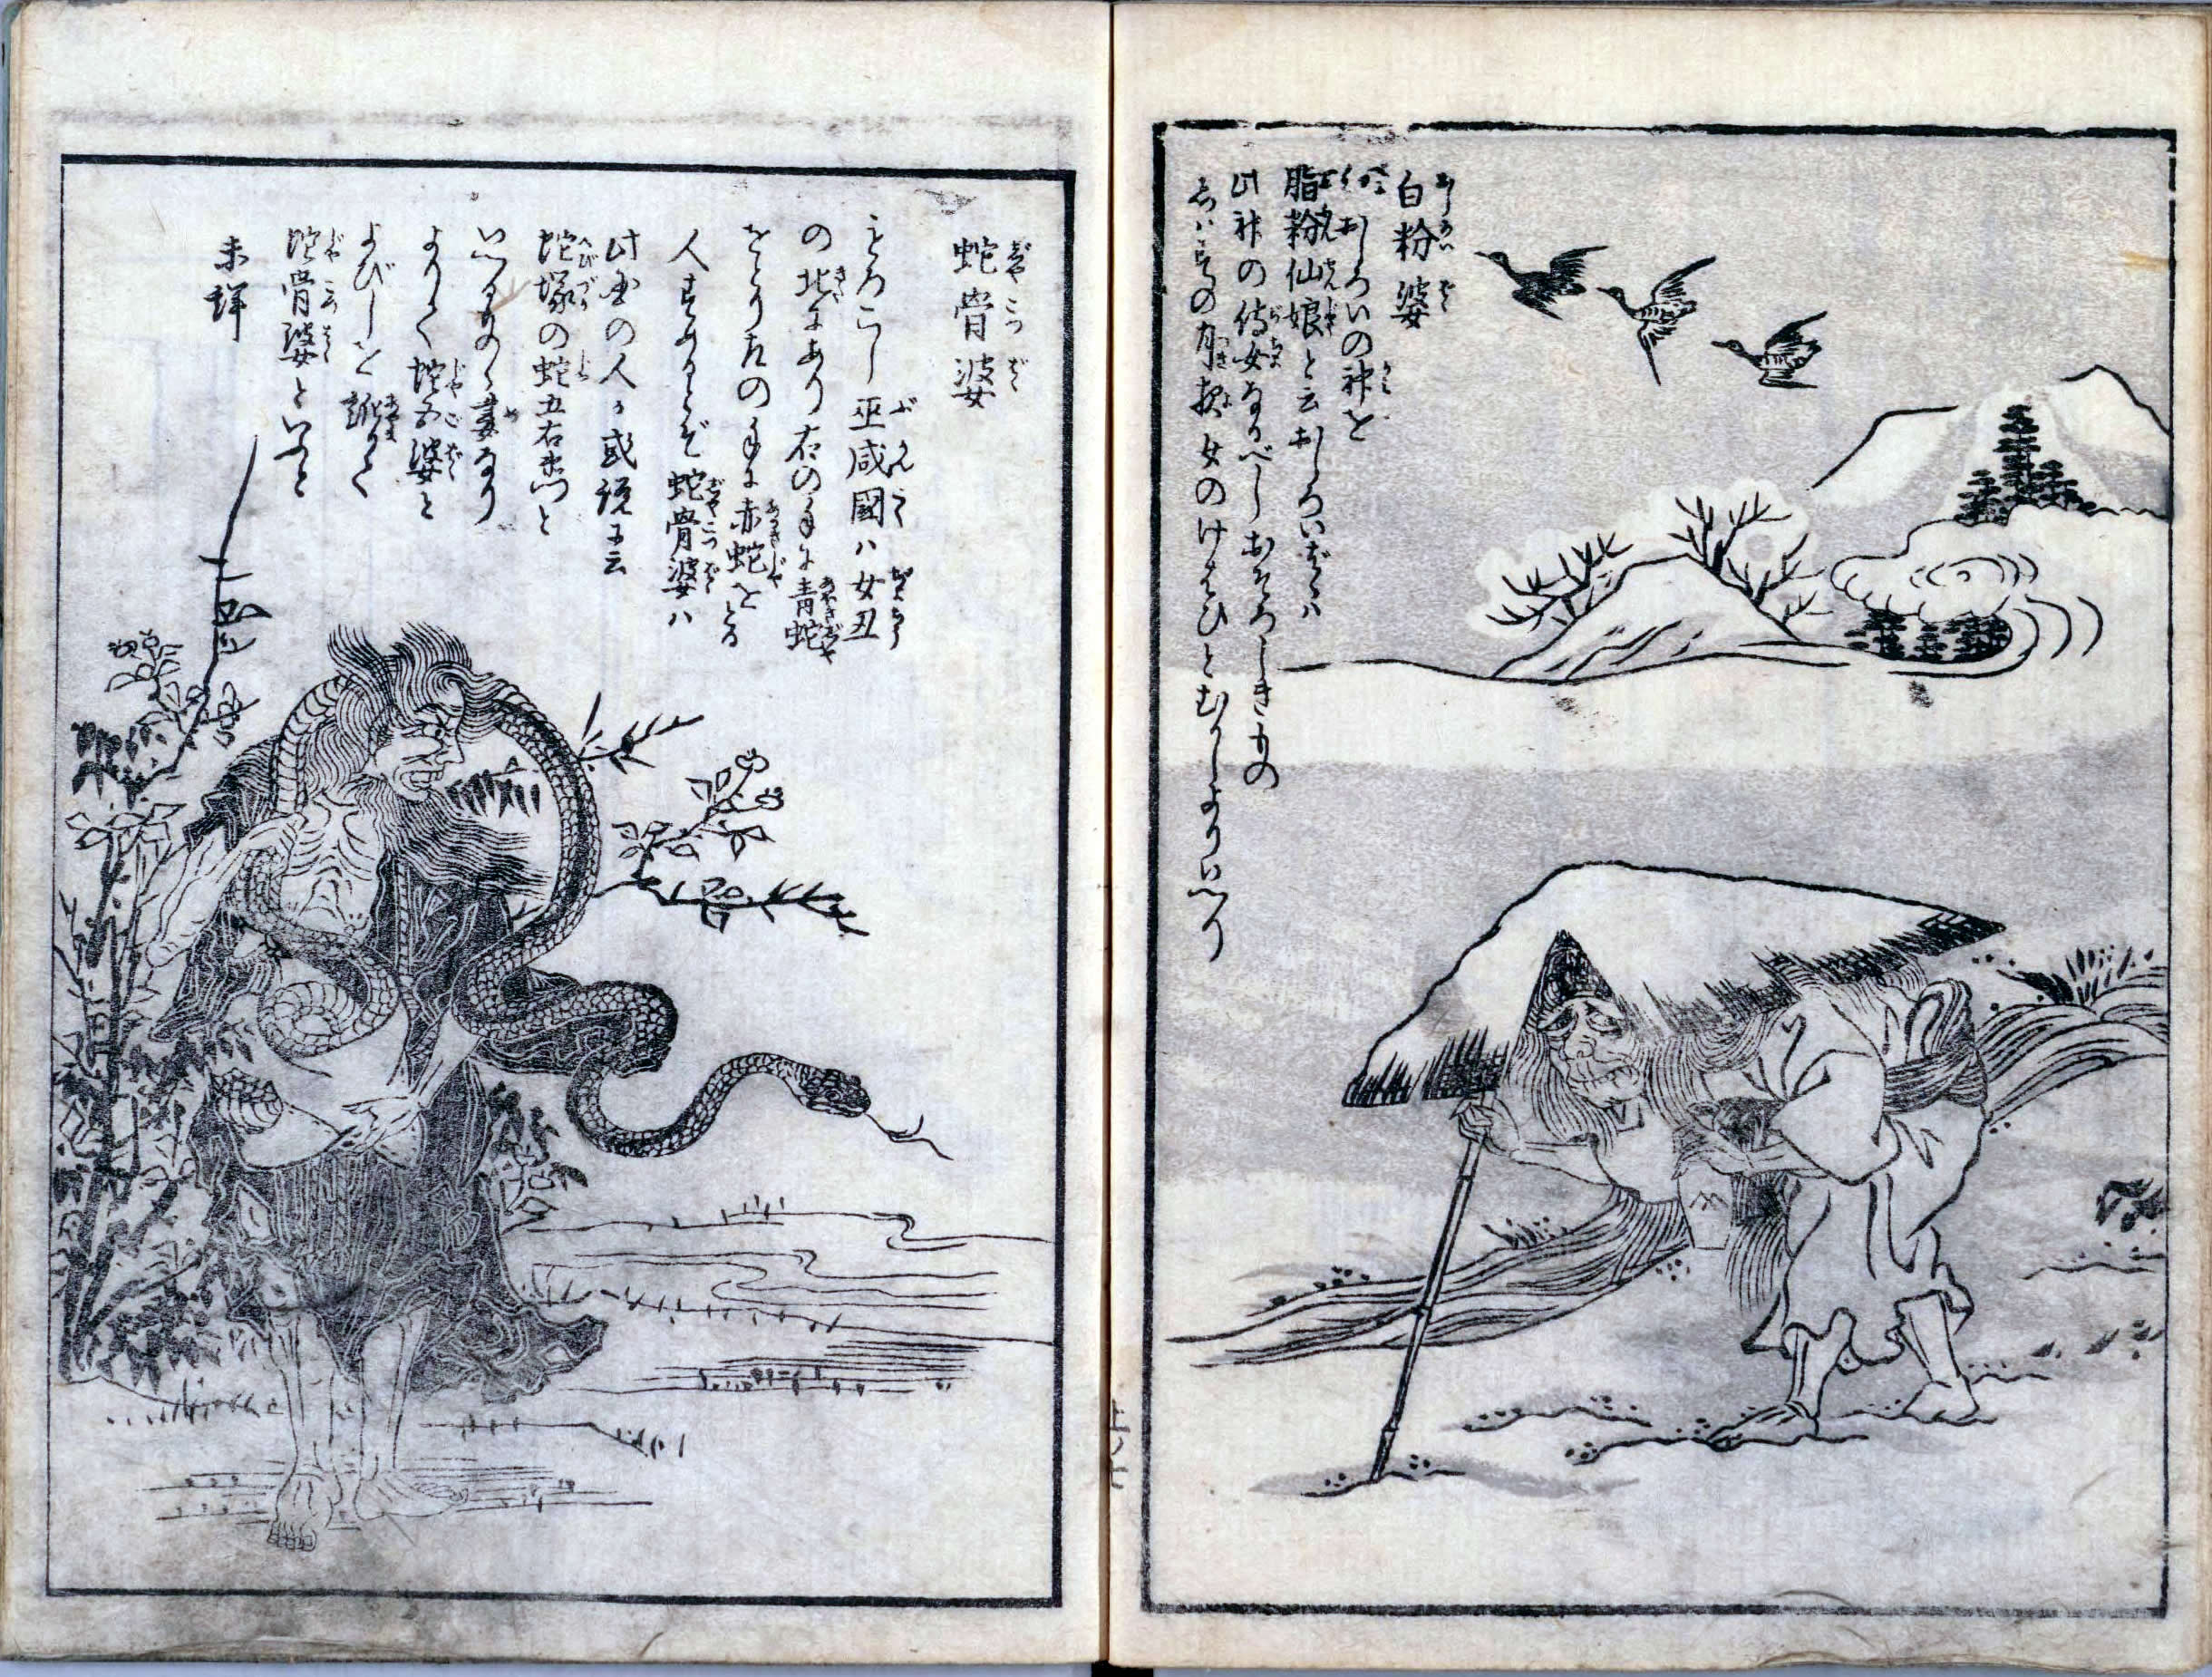 白粉婆
紅おしろいの神を
脂粉仙娘と云おしろいばゝハ
此神の侍女なるべしおそろしきもの
しハすの月夜女のけはひとむかしよりいへり
蛇骨婆
もろこし巫咸國ハ女丑
の北にあり右の手に青蛇
をとり左の手に赤蛇をとる
人すめるとぞ蛇骨婆ハ
此国の人か或説に云
蛇塚の蛇五右衛門と
いへるものゝ妻なり
よりて蛇五婆と
よびしを訛りて
蛇骨婆といふと
未詳